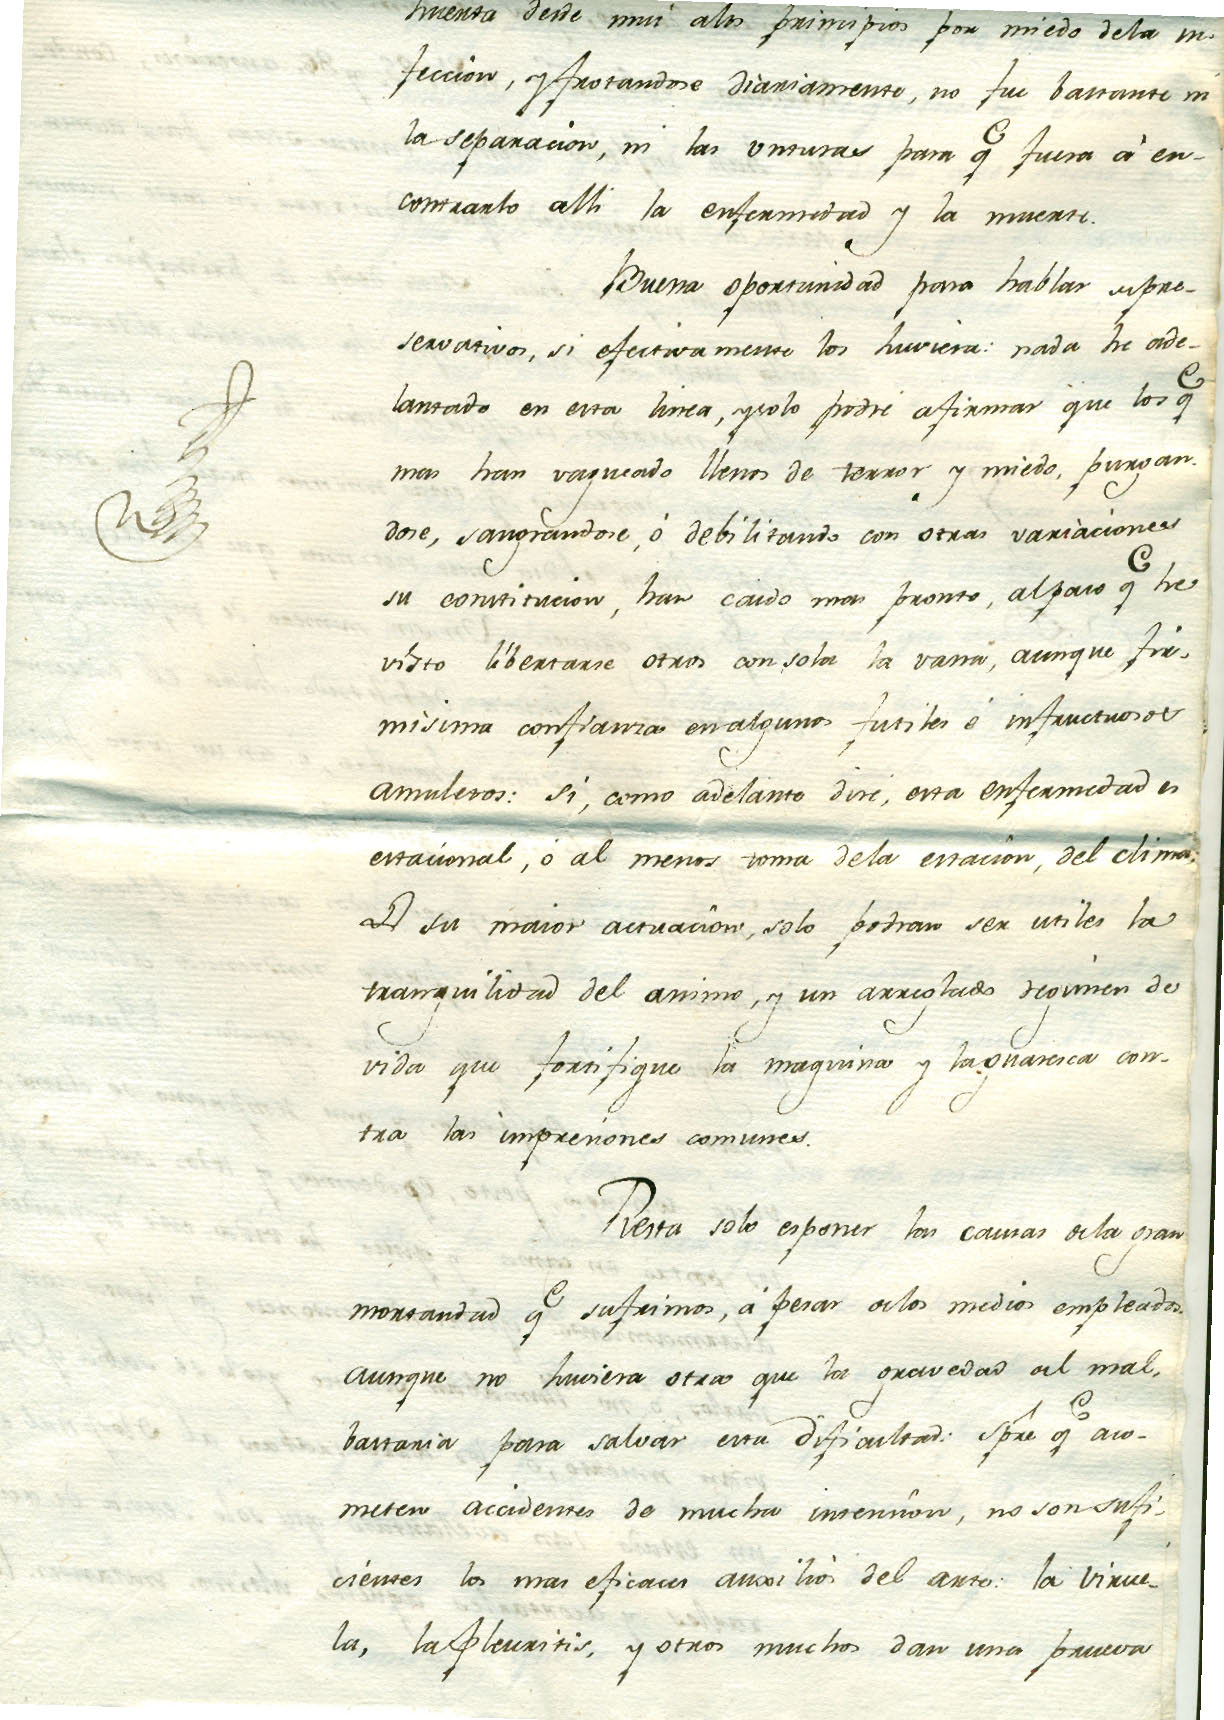 huerta desde mui altos principios por miedo dela in-
feccion, y frotandose diariamente, no fue bastante ni
la separacion, ni las unturas para q^e fuera à en-
contrarlo alli la enfermedad y la muerte.
Buena oportunidad para hablar de pre-
servativos, si efectivamente los huviera: nada he ade-
lantado en esta linea, y solo podré afirmar que los q^e
mas han vagueado llenos de terror y miedo, purgan-
dose, sangrandose, ó debilitando con otras variaciones
su constitucion, han caido mas pronto, al paso q^e he
visto libertarse otros con sola la vana, aunque fir-
misima confianza en algunos futiles é infructuosos
amuletos: si, como adelante diré, esta enfermedad es
estacional, ó al menos toma dela estacion, del clima,
su maior actuacion, solo podran ser utiles la
tranquilidad del animo, y un arreglado regimen de
vida que fortifique la maquina y la guaresca con-
tra las impresiones comunes.
Resta solo esponer las causas dela gran
mortandad q^e sufrimos, á pesar delos medios empleados.
aunque no huviera otra que la gravedad del mal,
bastaria para salvar esta dificultad: spre q^e aco-
meten accidentes de mucha intension, no son sufi-
cientes los mas eficaces auxilios del arte: la virue-
la, la pleuritis, y otros muchos dan una prueva